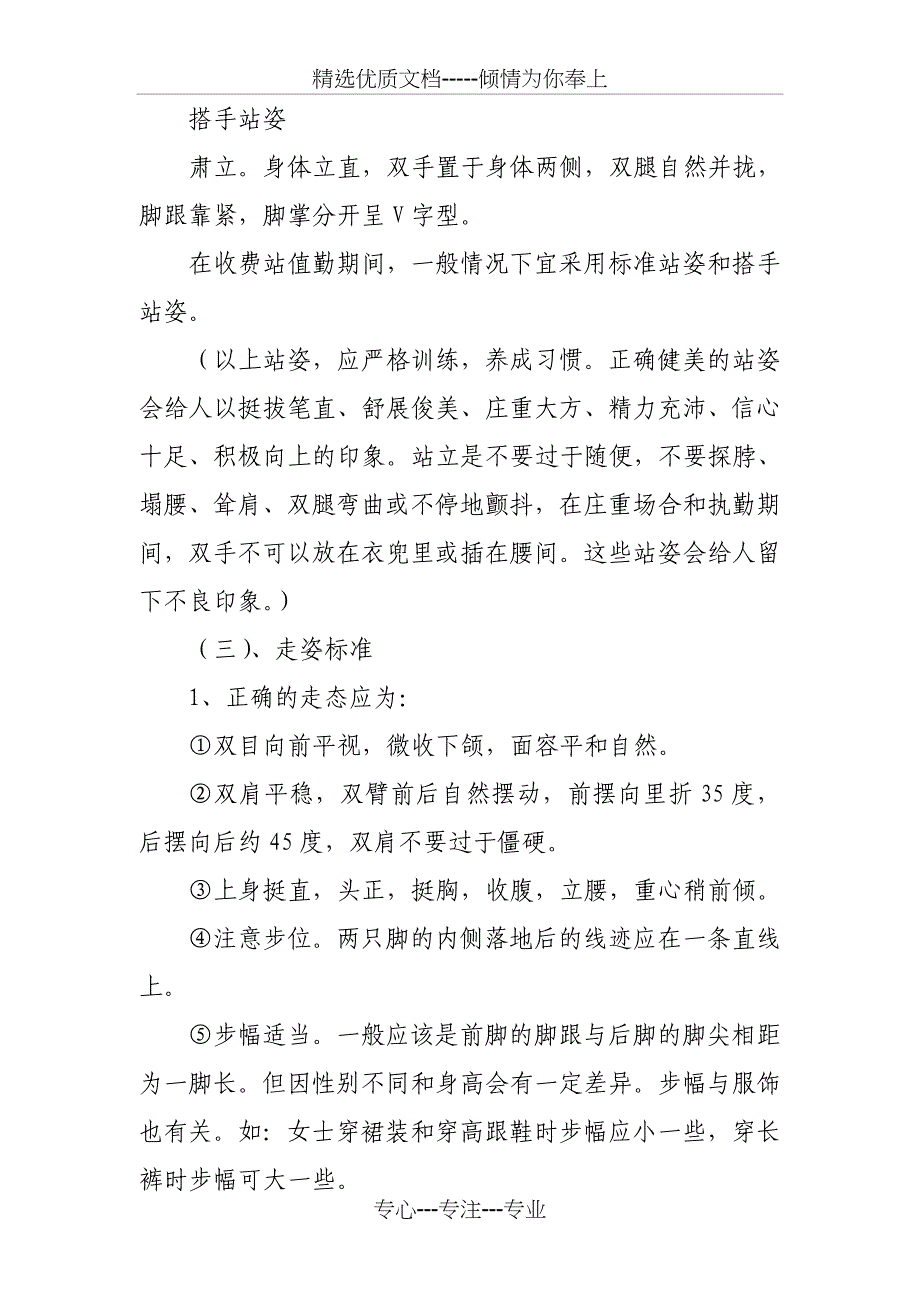 精选优质文档-----倾情为你奉上
搭手站姿
肃立。身体立直，双手置于身体两侧，双腿自然并拢，
脚跟靠紧，脚掌分开呈 V 字型。
在收费站值勤期间，一般情况下宜采用标准站姿和搭手
站姿。
（以上站姿，应严格训练，养成习惯。正确健美的站姿
会给人以挺拔笔直、舒展俊美、庄重大方、精力充沛、信心
十足、积极向上的印象。站立是不要过于随便，不要探脖、
塌腰、耸肩、双腿弯曲或不停地颤抖，在庄重场合和执勤期
间，双手不可以放在衣兜里或插在腰间。这些站姿会给人留
下不良印象。）
（三）、走姿标准
1、正确的走态应为：
①双目向前平视，微收下颌，面容平和自然。
②双肩平稳，双臂前后自然摆动，前摆向里折 35 度，
后摆向后约 45 度，双肩不要过于僵硬。
③上身挺直，头正，挺胸，收腹，立腰，重心稍前倾。
④注意步位。两只脚的内侧落地后的线迹应在一条直线
上。
⑤步幅适当。一般应该是前脚的脚跟与后脚的脚尖相距
为一脚长。但因性别不同和身高会有一定差异。步幅与服饰
也有关。如：女士穿裙装和穿高跟鞋时步幅应小一些，穿长
裤时步幅可大一些。
专心---专注---专业